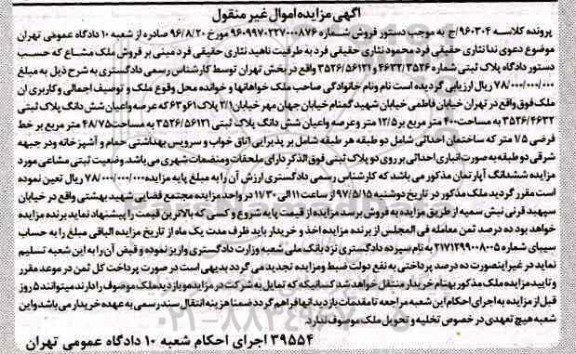 آگهی مزایده اموال غیر منقول
پرونده کلاسه ۹۶۰۳۰۴/ج به موجب دستور فروش شماره ۹۶۰۹۹۷۰۲۲۷۰۰۰۸۷۶ مورخ ۹۶/۸/۲۰ صادره از شعبه ۱۰ دادگاه عمومی تهران
موضوع دعوی ندا نثاری حقیقی فرد محمود نثاری حقیقی فرد به طرفیت ناهید نثاری حقیقی فرد مبنی بر فروش ملک مشاع که حسب
دستور دادگاه پلاک ثبتی شماره ۴۶۳۲/۳۵۲۶ و ۳۵۲۶/۵۶۱۲۱ واقع در بخش تهران توسط کارشناس رسمی دادگستری به شرح ذیل به مبلغ
۷۸/۰۰۰/۰۰۰/۰۰۰ ریال ارزیابی گردیده است نام ونام خانوادگی صاحب ملک خواهانها و خوانده محل وقوع ملک و توصیف اجمالی و کاربری ان
ملک فوق واقع در تهران خیابان فاطمی خیابان شهید گمنام خیابان جهان مهر خیابان ۲/۱ پلاک ۶۱و۶۳ که عرصه واعیان شش دانگ پلاک ثبتی
۳۵۲۶/۴۶۳۲ به مساحت ۴۰۰ متر مربع بر ۱۲/۵ متر وعرصه واعیان شش دانگ پلاک ثبتی ۳۵۲۶/۵۶۱۲۱ به مساحت ۴۸/۷۵ متر مربع بر خط
فرضی ۱/۵ متر که ساختمان احداثی شامل دو طبقه هر طبقه شامل بر پذیرایی اتاق خواب و سرویس بهداشتی حمام و آشپزخانه ودر جبهه
شرقی دو طبقه به صورت انباری احداثی بر روی دو پلاک ثبتی فوق الذکر دارای ملحقات ومنضمات شهری می باشد. وضعیت ثبتی مشاعی مورد
مزایده ششدانگ آپارتمان مذکور می باشد که کارشناس رسمی دادگستری ارزش آن را به مبلغ پایه مزایده ۷۸/۰۰۰/۰۰۰/۰۰۰ ریال تعین نموده
است مقرر گردید ملک مذکور در تاریخ دوشنبه ۹۷/۵/۱۵ از ساعت ۱۱ الی ۱۱/۳۰ در واحد مزایده مجتمع قضایی شهید بهشتی واقع در خیابان
سپهبد قرنی نبش سمیه از طریق مزایده به فروش برسد مزایده از قیمت پایه شروع و کسی که بالاترین قیمت را پیشنهاد نماید برنده مزایده
خواهد بود ده درصد ثمن معامله فی المجلس از برنده مزایده اخذ و خریدار باید ظرف مدت یک ماه از تاریخ مزایده الباقی مبلغ را به حساب
سیبای شماره ۲۱۷۱۲۹۹۰۰۸۰۰۵ به نام سپرده دادگستری نزد بانک ملی شعبه وزارت دادگستری واریز نموده و قبض آن را به این شعبه تسلیم
نماید در غیر اینصورت ده درصد پرداختی به نفع دولت ضبط ومزایده تجدید می گردد بدیهی است در صورت پرداخت کل ثمن در موعد مقرر
و تایید مزایده ملک مذکور بهنام خریدار منتقل خواهد شد کسانیکه که تمایل به شرکت در مزایده و بازدید ملک موصوف را دارند میتوانند ۵ روز
قبل از مزایده به اجرای احکام این شعبه مراجعه تا مقدمات بازدید انها فراهم گردد ضمنا هزینه انتقال سند رسمی به عهده خریدار می باشد و این
شعبه هیچ تعهدی در خصوص تخلیه و تحویل ملک موصوف ندارد.
۳۹۵۵۴ اجرای احکام شعبه ۱۰ دادگاه عمومی تهران